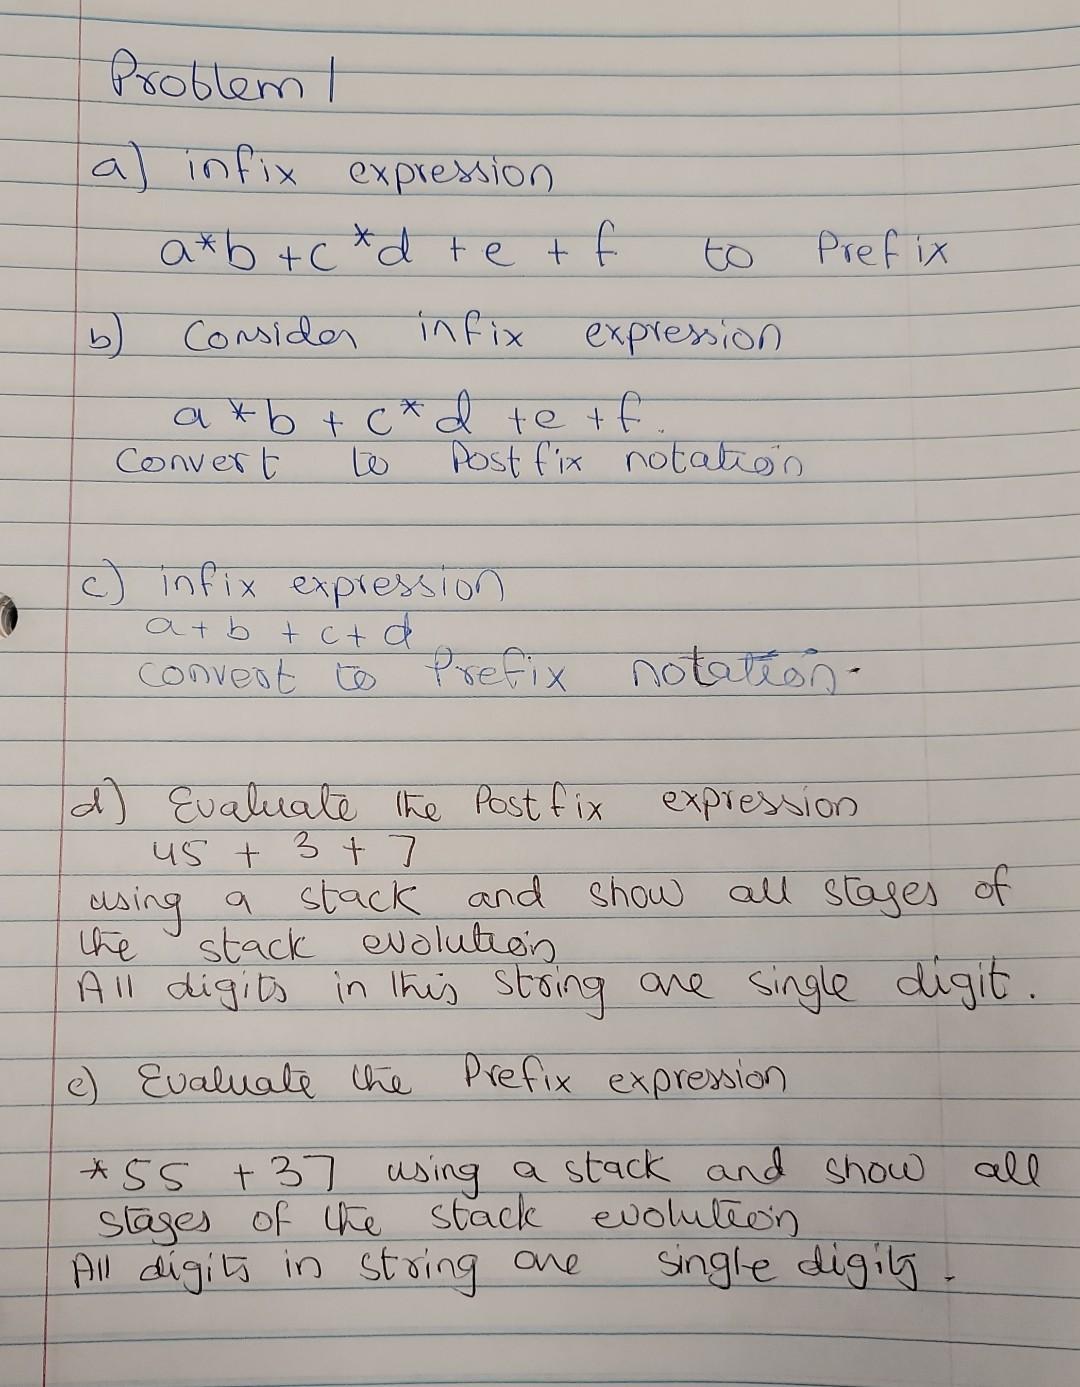 Problem 1
a) infix expression
a*b + c *d + e + f to Prefix
b) Consider infix expression
a * b + c * d + e + f.
Convert to Postfix notation
c) infix expression
a + b + c + d
convert to Prefix notation.
d) Evaluate the Postfix expression
45 + 3 + 7
using a stack and show all stages of
the stack evolution
All digits in this string are single digit.
e) Evaluate the Prefix expression
*55 + 37 using a stack and show all
stages of the stack evolution
All digits in string are single digits.